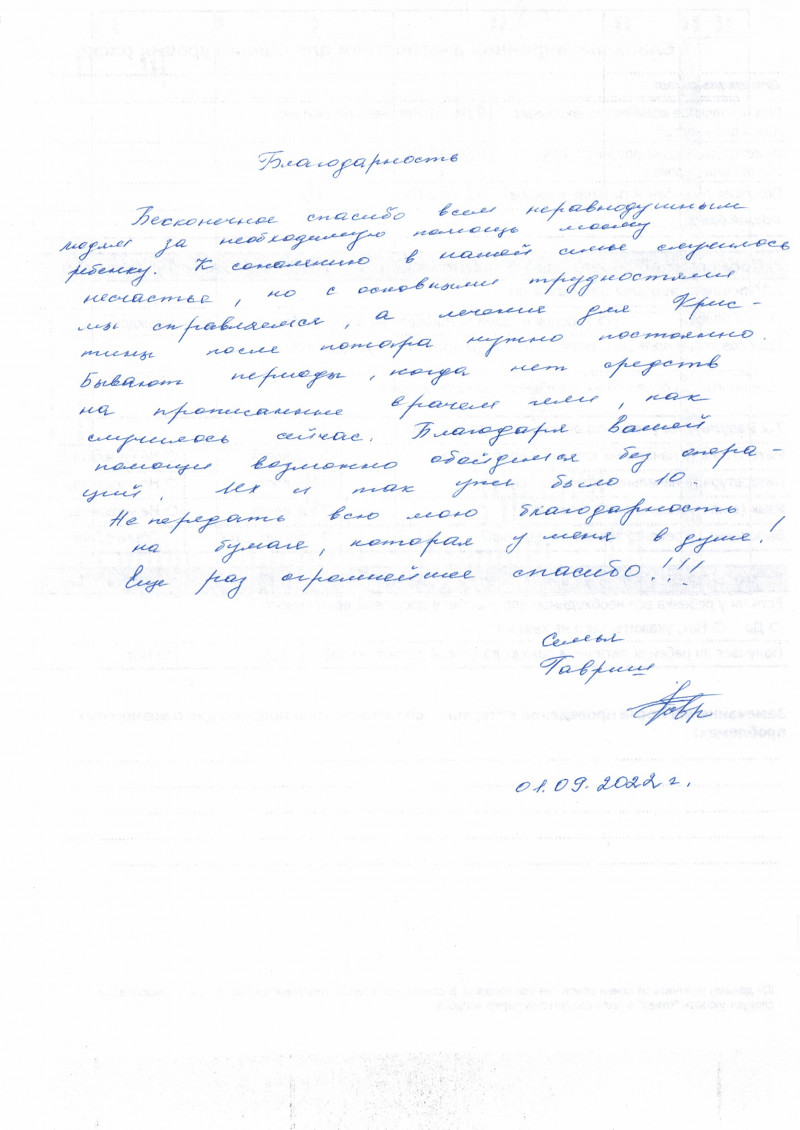 Благодарность
Бесконечное спасибо всем неравнодушным
людям за необходимую помощь моему
ребенку. К сожалению в нашей семье случилось
несчастье, но с основными трудностями
мы справляемся, а лечение для Крис-
тины после пожара нужно постоянно.
Бывают периоды, когда нет средств
на прописанные врачем гели, как
случилось сейчас. Благодаря Вашей
помощи возможно обойдемся без опера-
ций. Их и так уже было 10.
Не передать всю мою благодарность
на бумаге, которая у меня в душе!
Еще раз огромнейшее спасибо!!!
Семья
Гавриш
01.09.2022 г.